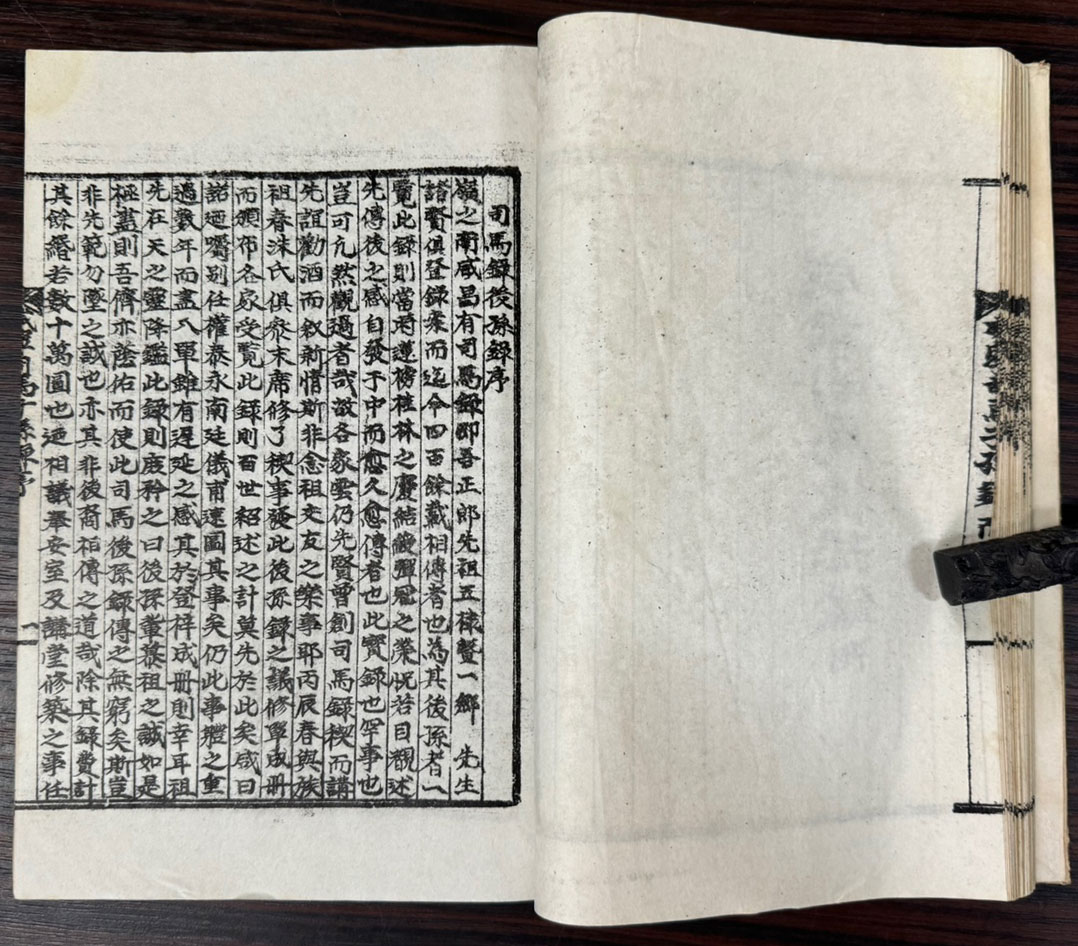 司馬錄後孫錄序
嶺之南咸昌有司馬錄卽吾正郎先祖五棣曁一鄉 先生
諸賢俱登錄案而迄今四百餘載相傳者也為其後孫者一
覽此錄則當時蓮榜桂林之慶結綬彈冠之榮怳若目覩述
先傳後之感自發于中而愈久愈傳者也此寶錄也罕事也
豈可冗然觀過者哉故各家雲仍先賢曾創司馬錄稧而講
先誼勸酒而敘新情斯非念祖交友之樂事耶丙辰春與族
祖春洙氏俱參末席修了稧事發此後孫錄之議修單成冊
而頒布各家受覽此錄則百世紹述之計莫先於此矣咸曰
諾廼囑別任權泰永南廷儀甫遠圖其事矣仍此事軆之重
過數年而盡入單雖有遲延之感其於登梓成冊則幸耳祖
先在天之靈降鑑此錄則庶矜之曰後孫輩慕祖之誠如是
極盡則吾儕亦蔭佑而使此司馬後孫錄傳之無窮矣斯豈
非先範勿墜之誠也亦其非後裔相傳之道哉除其錄費計
其餘緡若數十萬圓也廼相議奉安室及講堂修築之事任
序
一